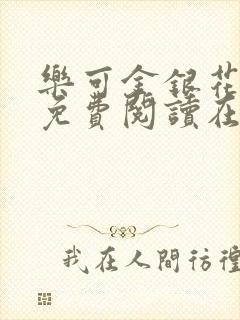 樂可金銀花
免費閱讀在
我在人間彷徨